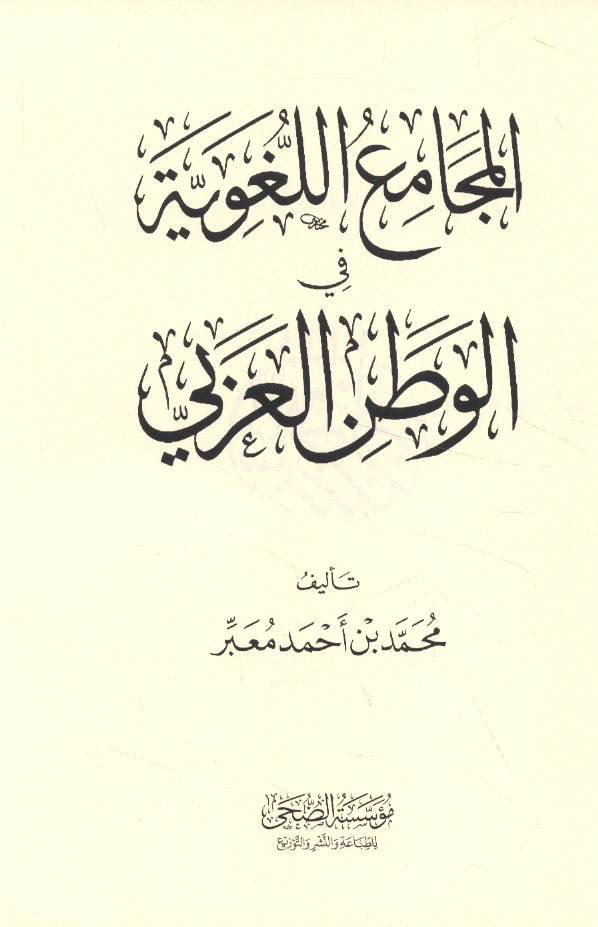 المَجَامِعُ اللُّغَوِيَّة
فِي
الوَطَنِ العَرَبِيّ
تأليفُ
مُحَمَّد بْن أَحْمَد مُعَبِّر
مُؤَسَّسَةُ الضُّحَى
لِلطِّبَاعَةِ وَالنَّشْرِ وَالتَّوْزِيْعِ